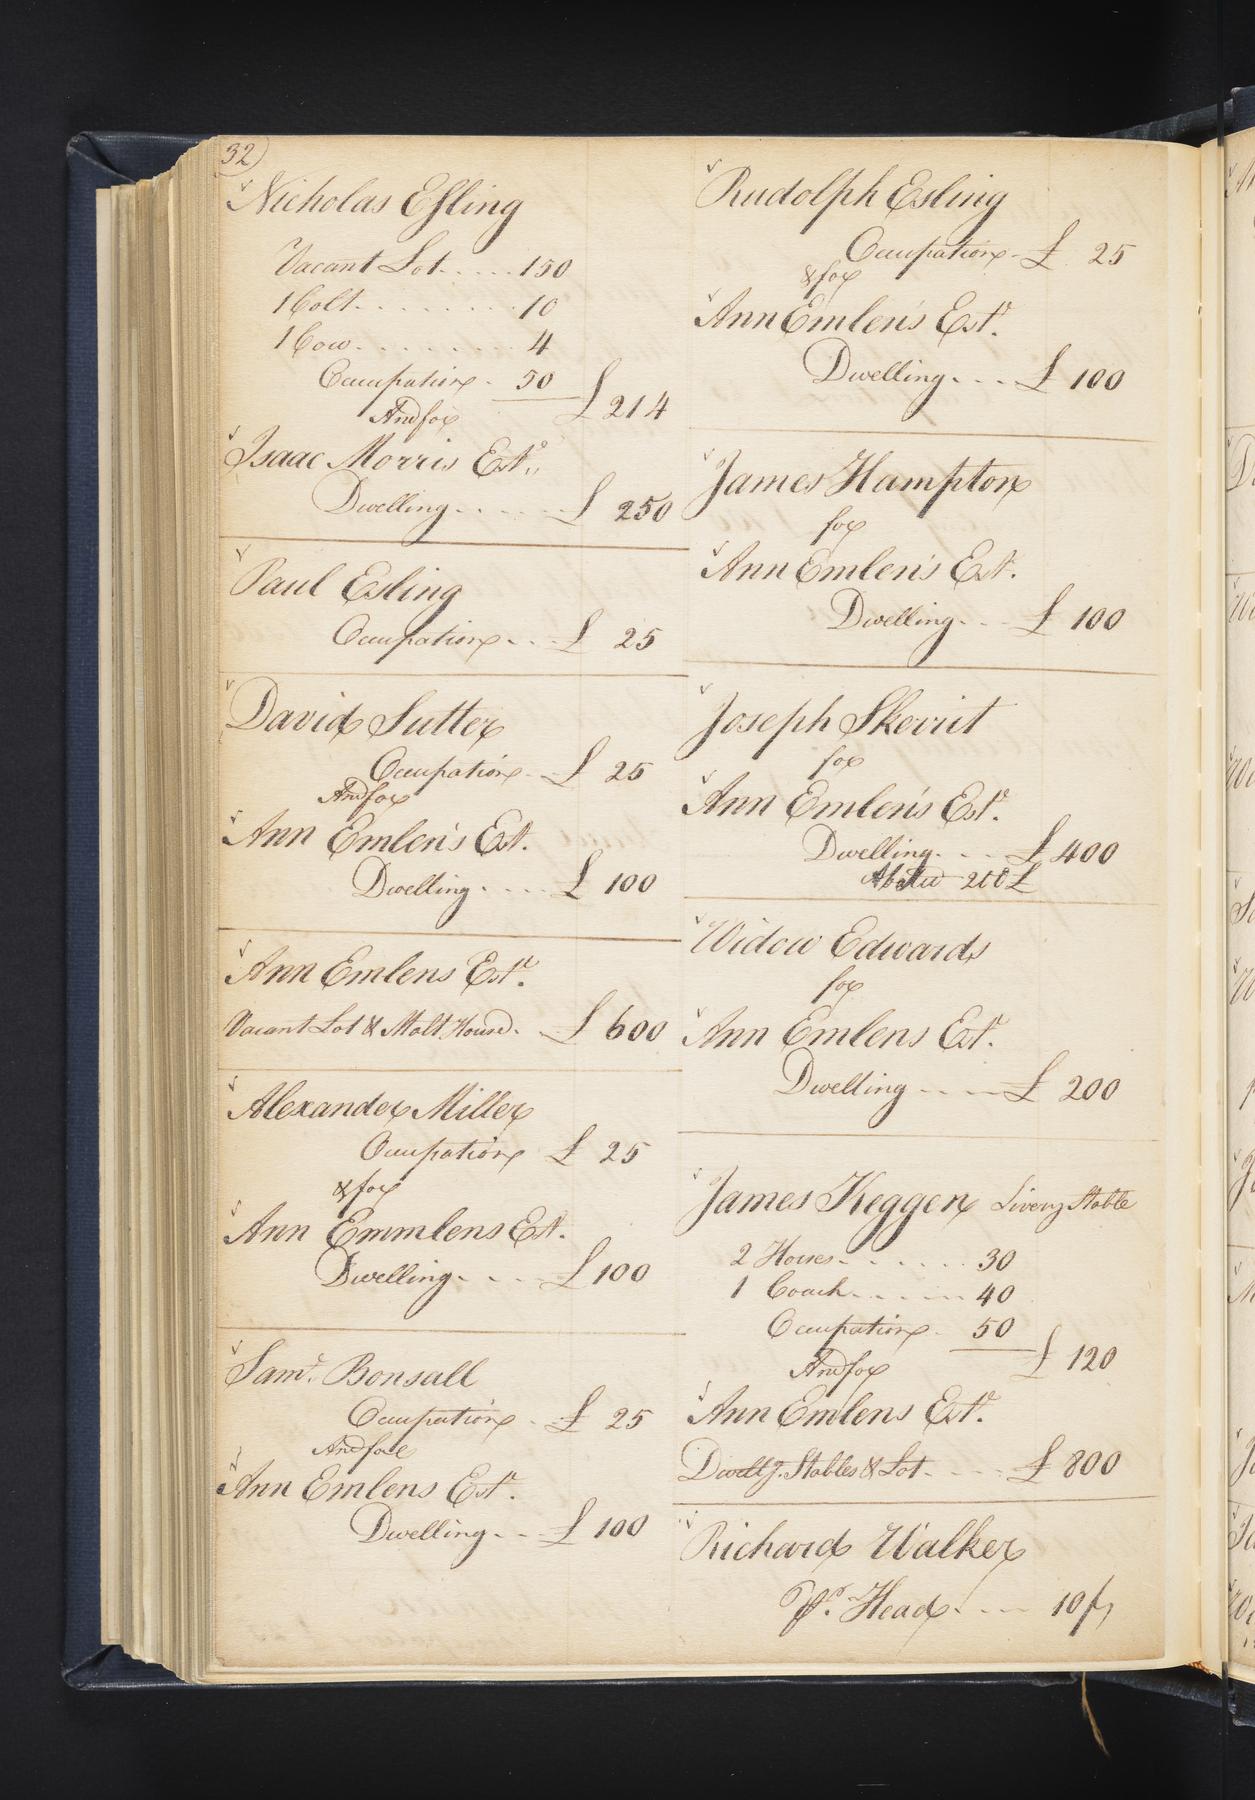 32
Nicholas Esling
Vacant Lot ..... 150
1 Colt ........ 10
1 Cow ........ 4
Occupation . 50
£ 214
And for
Isaac Morris Est.
Dwelling ..... £ 250
Paul Esling
Occupation ... £ 25
David Sutter
Occupation .. £ 25
And for
Ann Emlen's Est.
Dwelling .... £ 100
Ann Emlens Est.
Vacant Lot & Malt House. £ 600
Alexander Miller
Occupation £ 25
& for
Ann Emmlens Est.
Dwelling .... £ 100
Saml. Bonsall
Occupation . £ 25
And for
Ann Emlens Est.
Dwelling ... £ 100
Rudolph Esling
Occupation . £ 25
& for
Ann Emlen's Est.
Dwelling ... £ 100
James Hampton
for
Ann Emlen's Est.
Dwelling ... £ 100
Joseph Skerrit
for
Ann Emlen's Est.
Dwelling .... £ 400
Abated 200 £
Widow Edwards
for
Ann Emlens Est.
Dwelling .... £ 200
James Keggen Livery Stable
2 Horses ...... 30
1 Coach ..... 40
Occupation . 50
£ 120
And for
Ann Emlens Est.
Dwellg. Stables & Lot .... £ 800
Richard Walker
Pr. Head .... 10/